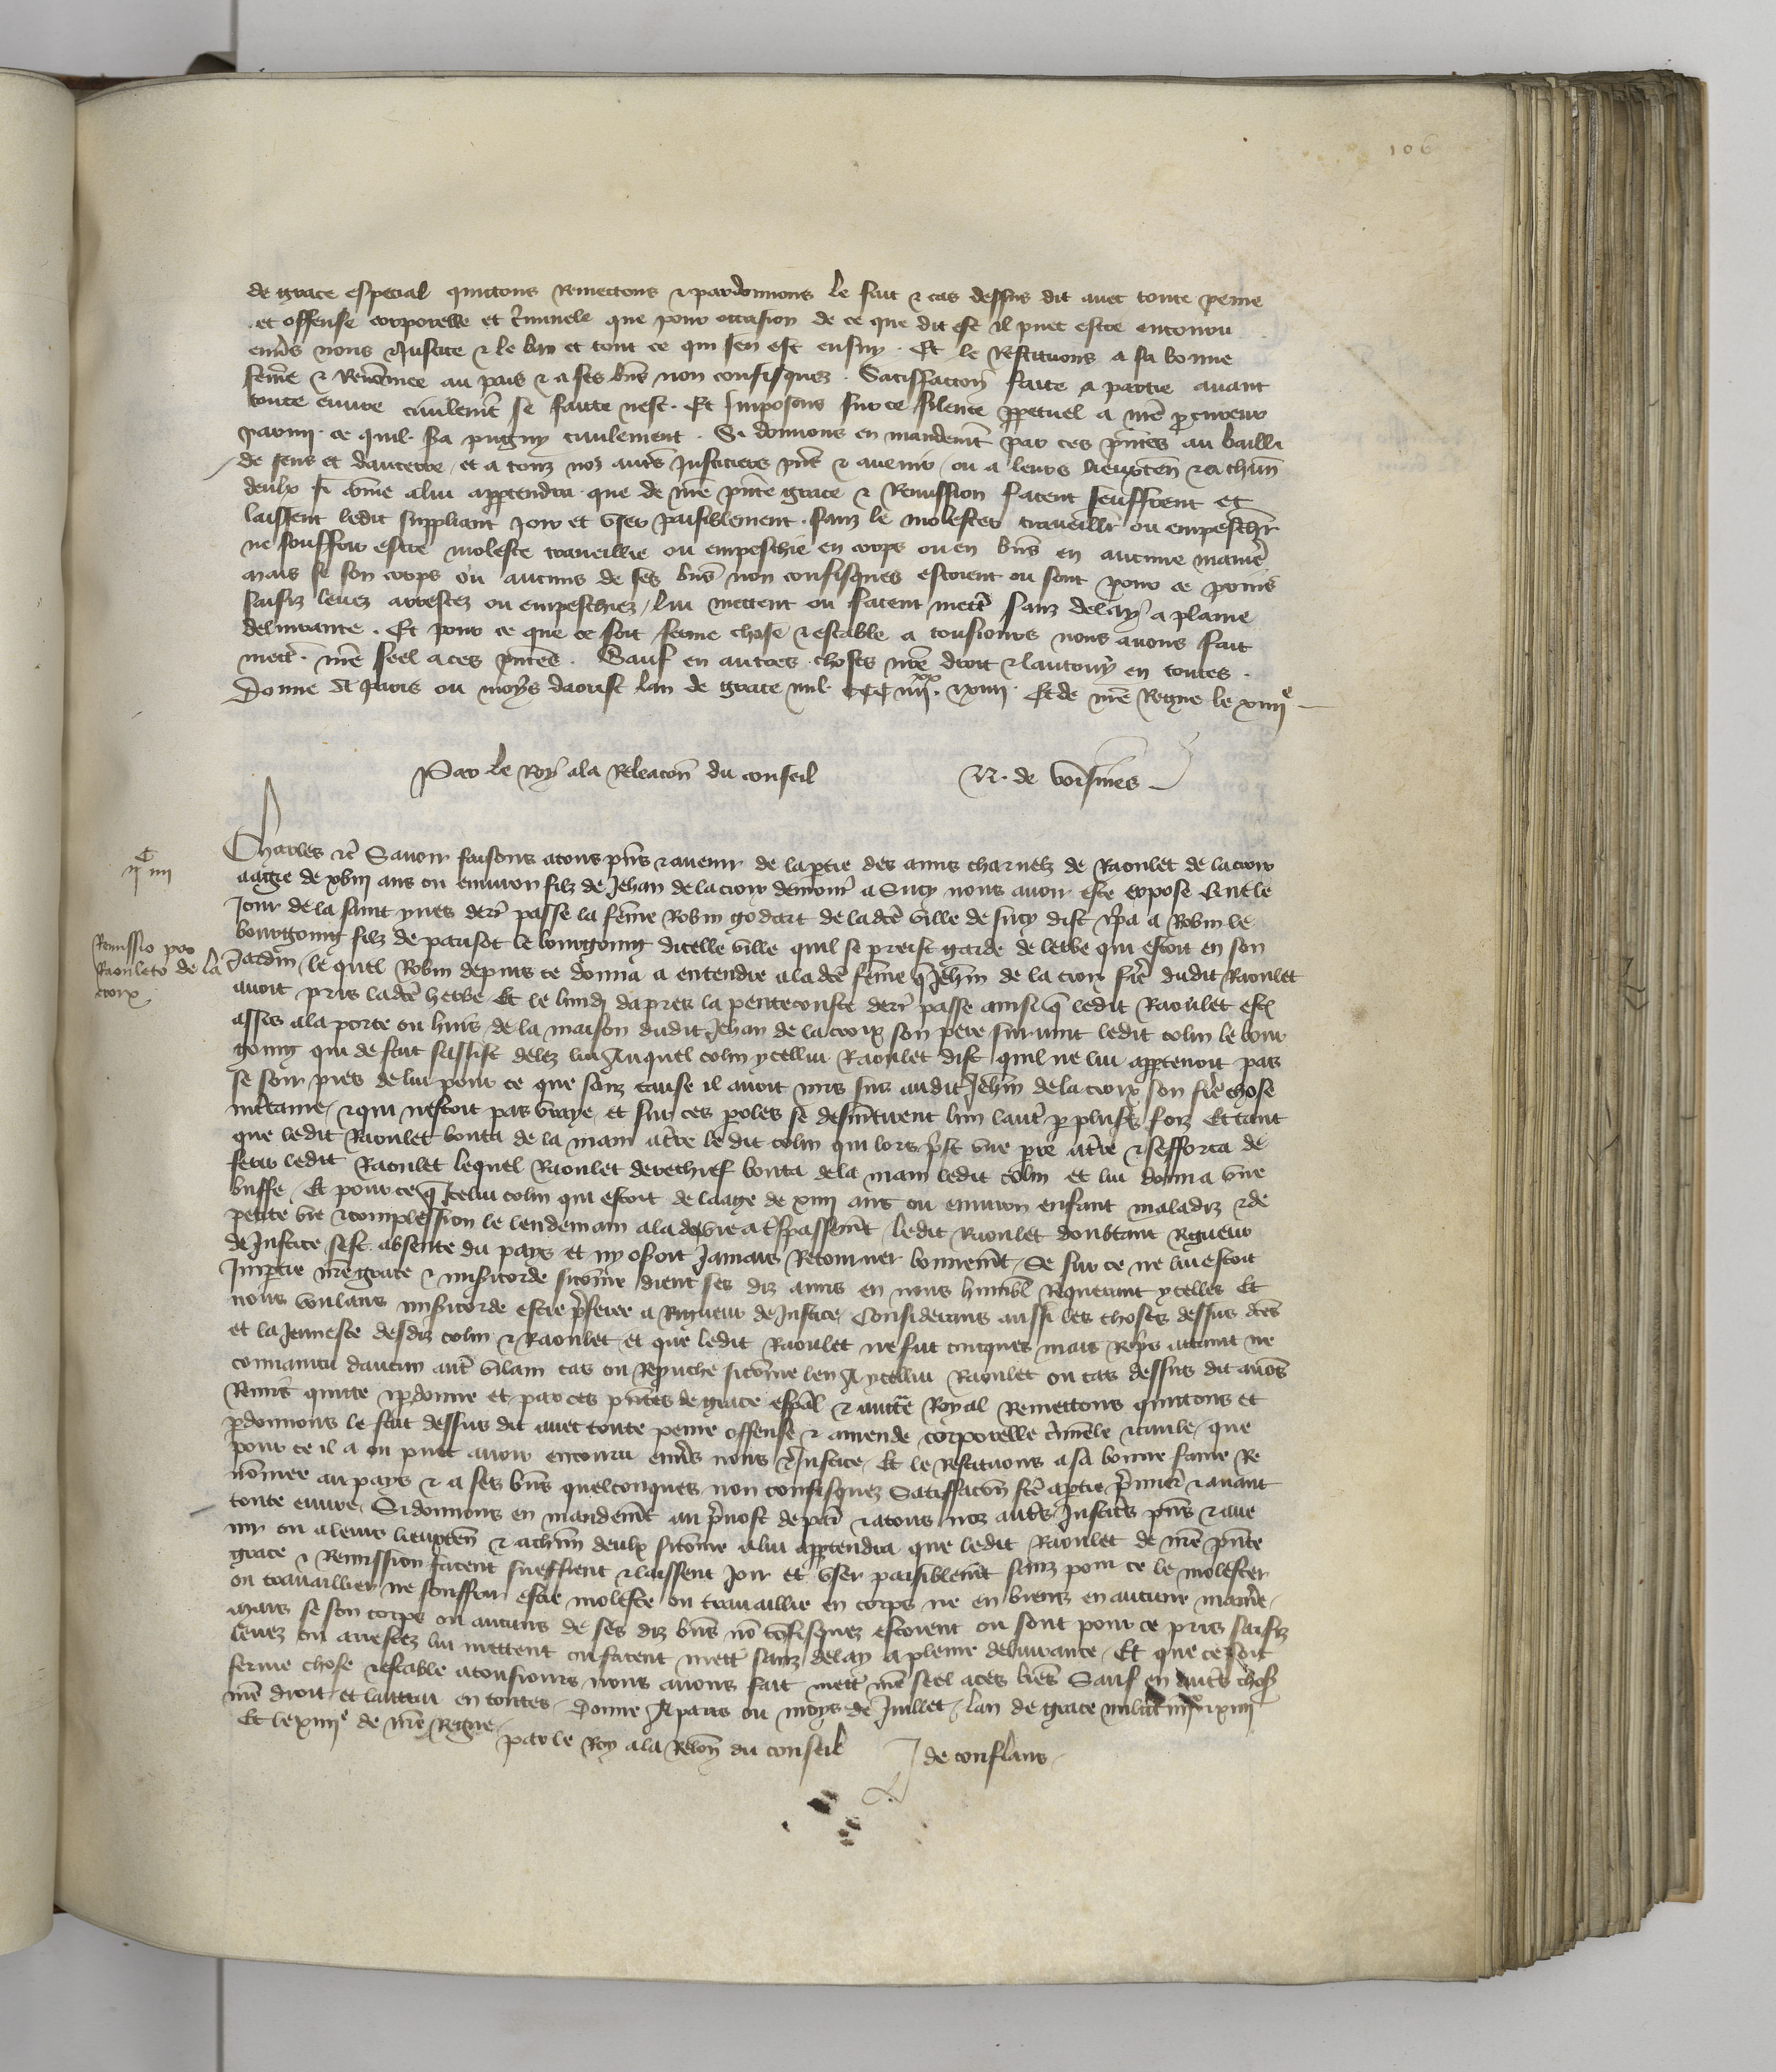 106
de grace especial quittons remettons & pardonnons le fait & cas dessus dit avec toute peine
et offense corporelle et criminele que pour occasion de ce que dit est il puet estre encouru
envers nous & justice & le ban et tout ce qui sen est ensuy . Et le restituons a sa bonne
feme & renomee au pais & a ses biens non confisquez . Satisfaction faite a partie avant
toute euvre civilemt se faicte nest . Et imposons sur ce silence perpetuel a nre procureur
parmi ce quil sera pugny civilement . Si donnons en mandemt par ces pntes au bailli
de sens et daucerre et a touz noz autres justiciers pns & avenir ou a leurs lieuxten & a chun
deulx si come a lui appartendra que de nre pnte grace & remission facent seuffrent et
laissent ledit suppliant joir et user paisiblement sanz le molester traveillier ou empeschier
ne souffrir estre moleste traveillie ou empeschie en corps ou en biens en aucune maniere
mais se son corps ou aucuns de ses biens non confisques estoient ou sont pour ce prins
saisiz levez arrestez ou empeschiez lui mettent ou facent mettre sanz delay a plaine
delivrance . Et pour ce que ce soit ferme chose & estable a tousiours nous avons fait
mettre nre seel a ces pntes . Sauf en autres choses nre droit & lautruy en toutes .
Donne A Paris ou moys daoust lan de grace mil CCC iiii xx xiiii Et de nre Regne le xiiii e
Par le Roy a la Relacon du conseil N. de voisines
Charles &c Savoir faisons a tous pns & avenir de la ptie des amis charnelz de Raoulet de la croix
aagie de xviii ans ou environ filz de Jehan de la croix demour a Sucy nous avoir este expose Que le
Jour de la saint yves derr passe la feme Robin godart de ladce ville de sucy dist & pa a Robin le
bourgoing filz de parisot le bourgoing dicelle ville quil se preist garde de lerbe qui estoit en son
Remissio pro
Raouleto de la
croix
Jardin le quel Robin depuis ce donna a entendre a ladce feme q Jehin de la croix frere dudit Raoulet
avoit pris ladce herbe Et le lundi dapres la penthecouste derr passe ainsi q ledit Raoulet est
assis a la porte ou huis de la maison dudit Jehan de la croix son pere survint ledit colin le bour
going qui de fait sassist delez lui Auquel colin ycellui Raoulet dist quil ne lui appartenoit pas
se seoir pres de lui pour ce que sanz cause il avoit mis sur audit Jehin de la croix son frere chose
& qui nestoit pas vraye et sur ces paroles se desmentirent lun lautre p plusrs foiz Et tant
que ledit Raoulet bouta de la main a tre le dit colin qui lors prist une pierre a tre & sefforca de
ferir ledit Raoulet lequel Raoulet derechief bouta de la main ledit colin et lui donna une
buffe Et pour ce q Icelui colin qui estoit de laage de xiiii ans ou environ enfant maladiz & de
petite vie & complession le lendemain ala de vie a trespassemt ledit Raoulet doubtant Rigueur
de Justice sest absente du pays et ny oseroit Jamais Retourner bonnemt Se sur ce ne lui estoit
Imptie nre grace & misericorde sicome dient ses diz amis en nous humblemt requerant ycelles Et
nous voulans misericorde estre preferee a Rigueur de Justice Considerans aussi les choses dessus dces
et la Jeunesse desdiz colin & Raoulet et que ledit Raoulet ne fut onques mais repris attaint ne
convaincu daucun autre vilain cas ou Reprouche sicome len A ycellui Raoulet ou cas dessus dit avons
Remis quitte & pdonne et par ces pntes de grace espal & aucte Royal Remettons quittons et
pdonnons le fait dessus dit avec toute peine offense & amende corporelle criminele & civile que
pour ce il a ou puet avoir encouru envers nous & Justice Et le Restituons a sa bonne fame Re
nomee au pays & a ses biens quelconques non confisquez Satisfaction fce a ptie primier & avant
toute euvre Si donnons en mandemt au prevost de paris & a tous noz autres Justiciers pns & ave
nir ou a leurs lieuxten & a chun deulx sicome a lui appartendra que ledit Raoulet de nre pnte
grace & Remission facent sueffrent & laissent joir et user paisiblemt sanz pour ce le molester
ou travaillier ne souffrir estre moleste ou travaillie en corps ne en biens en aucune maniere
mais se son corps ou aucuns de ses diz biens non cofisquez estoient ou sont pour ce pris saisiz
levez ou arrestez lui mettent ou facent mettre sanz delay a pleine delivrance Et que ce soit
ferme chose & estable a tousiours nous avons fait mettre nre seel a ces lres Sauf en autres choses
nre droit et lautrui en toutes Donne A paris ou moys de Juillet lan de grace mil CCC iiii xx xiiii
Et le xiiii e de nre Regne
par le Roy a la Relon du conseil J de conflans